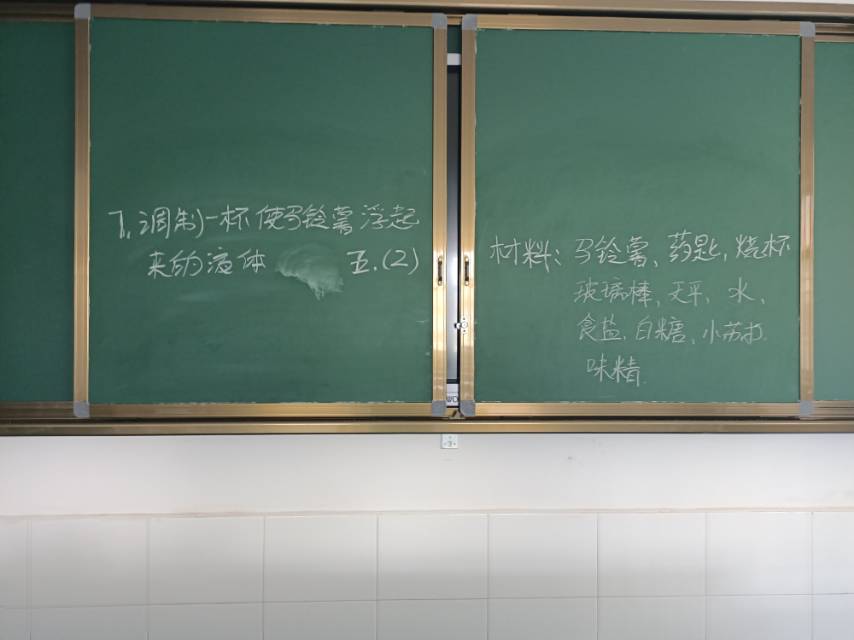 7、调制一杯使马铃薯浮起
来的液体 五.(2)
材料：马铃薯、药匙、烧杯
玻璃棒、天平、水、
食盐、白糖、小苏打、
味精